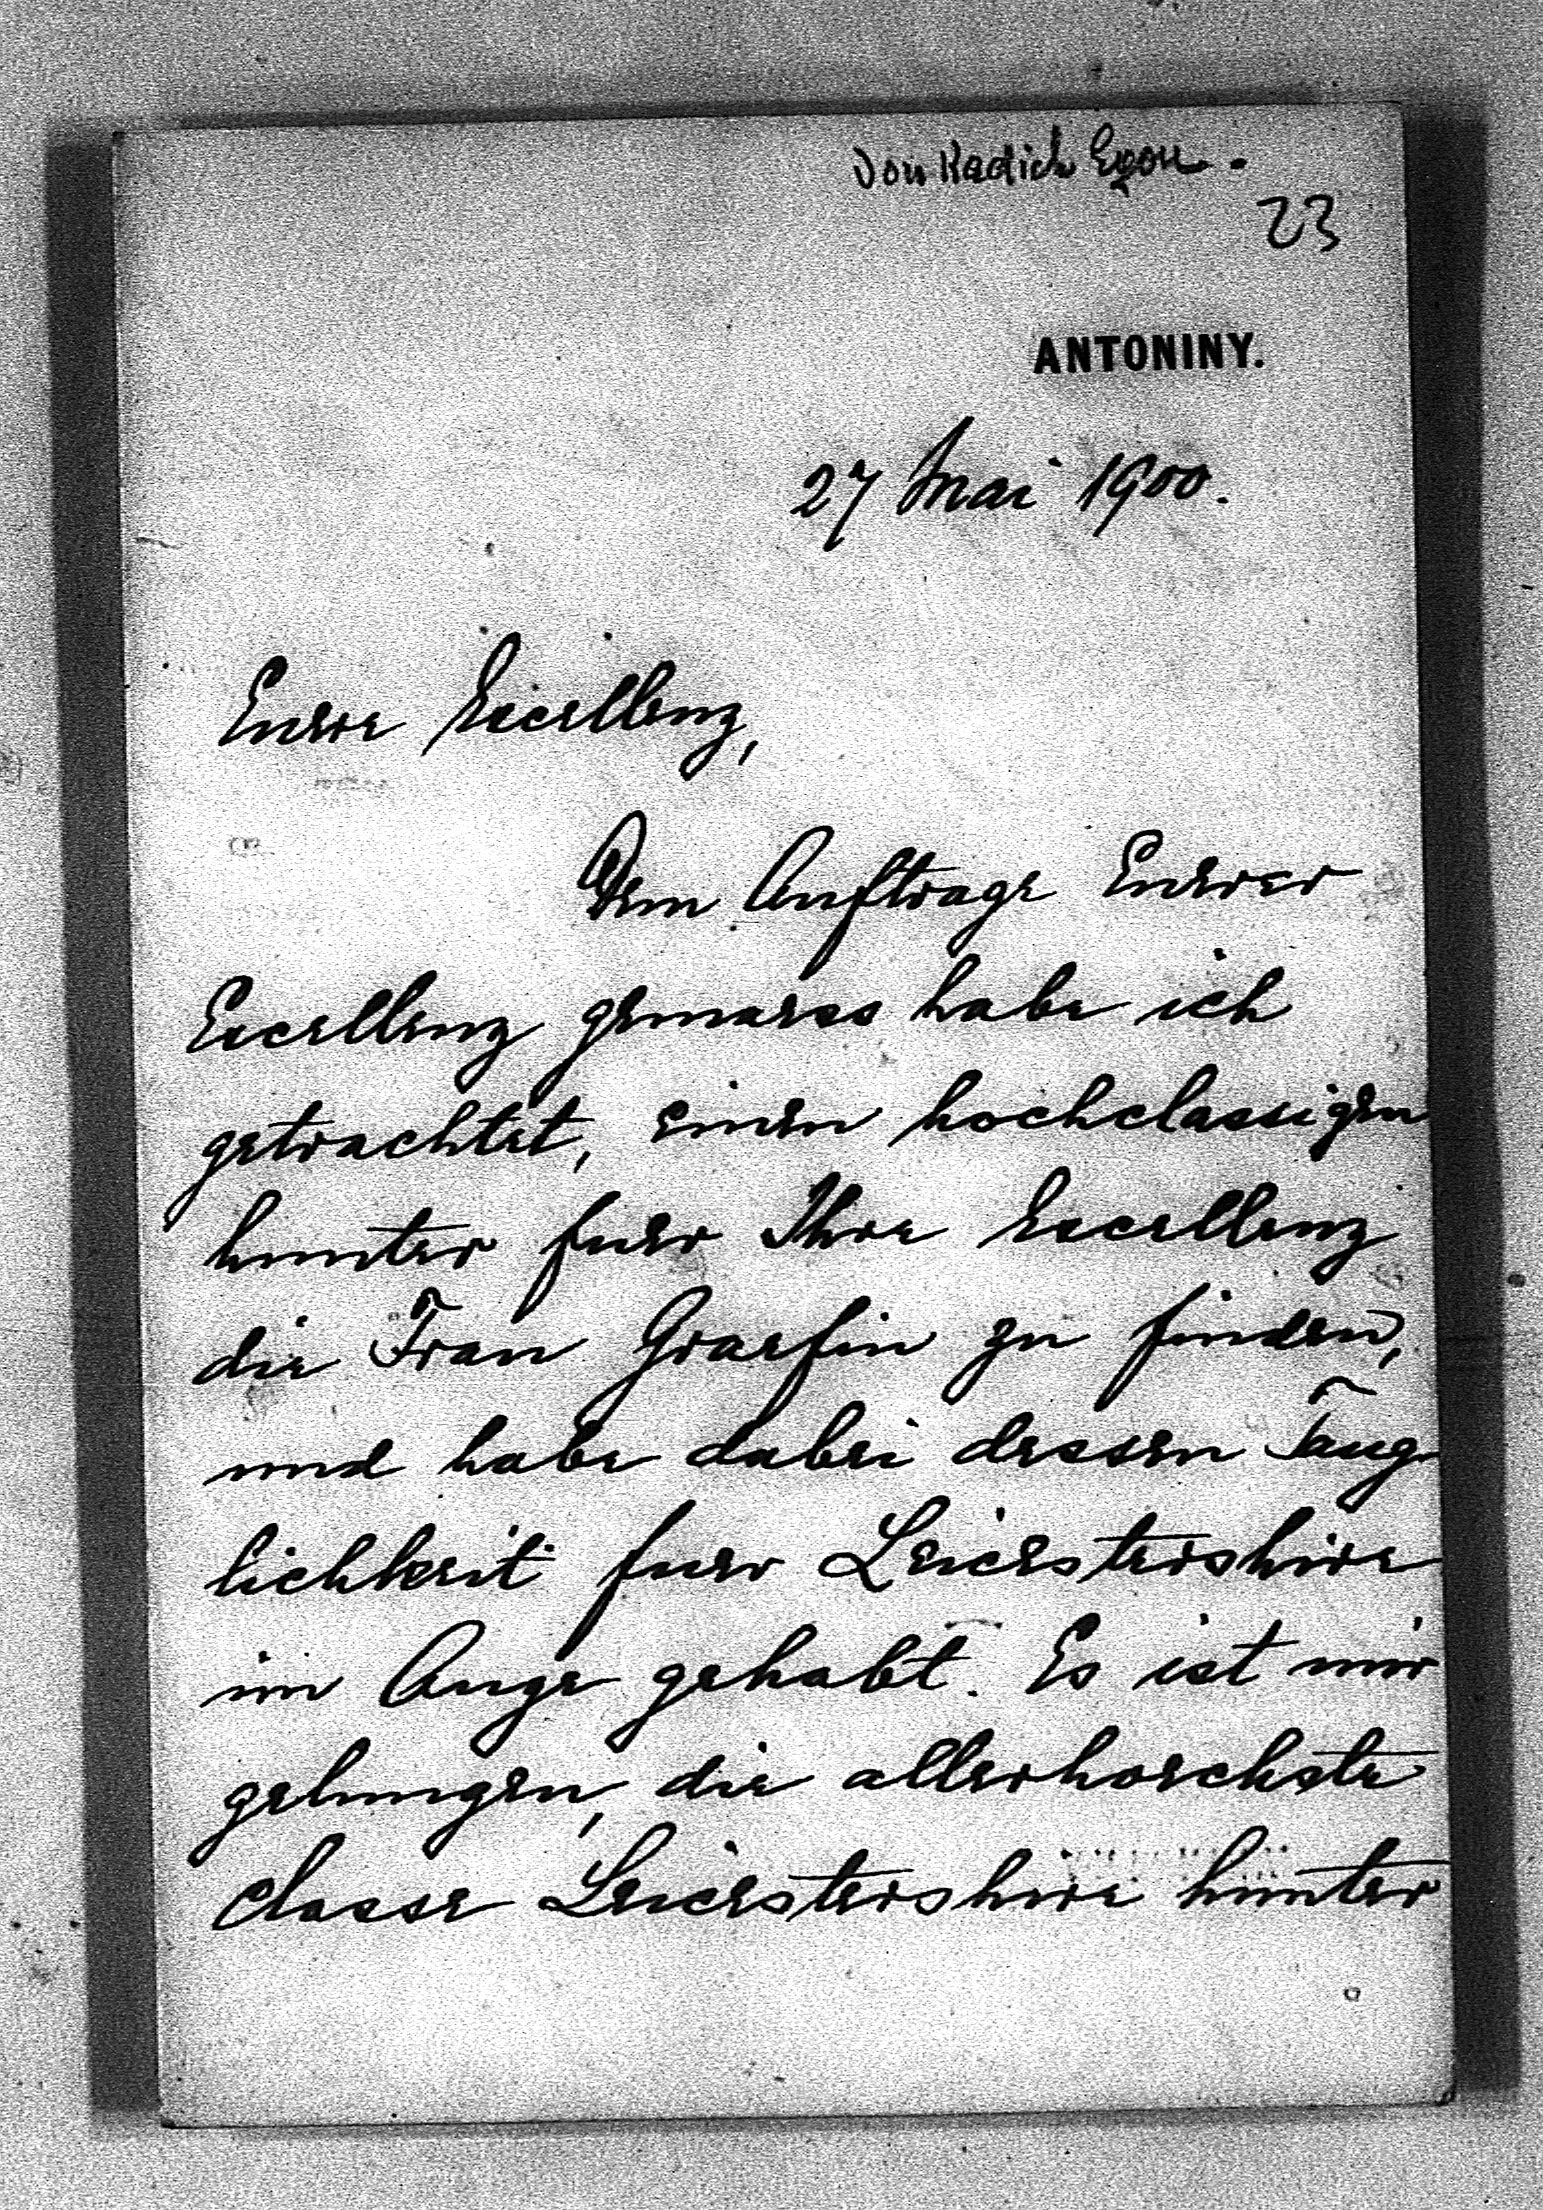 Von Radich Egon.
23
ANTONINY.
27 Mai 1900.
Euere Excellenz,
Dem Auftrage Euerer
Excellenz gemaess habe ich
getrachtet, einen hochclassigen
hunter fuer Ihre Excellenz
die Frau Graefin zu finden,
und habe dabei dessen Taug
lichkeit fuer Leicestershire
im Auge gehabt. Es ist mir
gelungen, die allerhoechste
Classe Leicestershire hunter